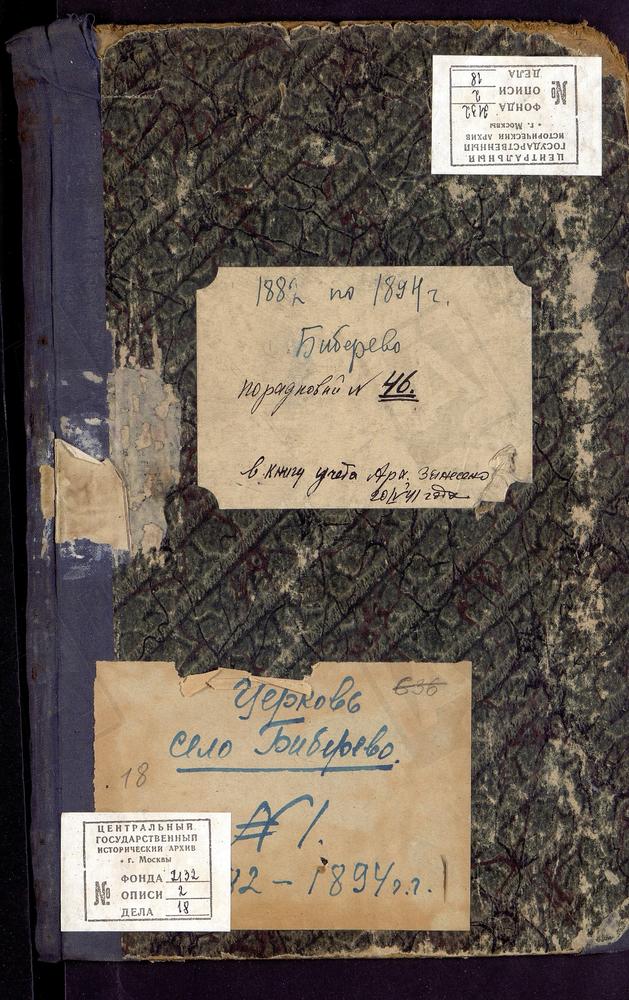 ЦЕНТРАЛЬНЫЙ
ГОСУДАРСТВЕННЫЙ
ИСТОРИЧЕСКИЙ АРХИВ
г. Москвы
№
ФОНДА 2132
ОПИСИ 2
ДЕЛА 18
1882 по 1894 г.
Биберево
порядковый N 46.
в книгу учета Арх. занесено
41 года
636
Церковь
село Биберево.
18
N 1.
92 – 1894 г.г.
ЦЕНТРАЛЬНЫЙ
ГОСУДАРСТВЕННЫЙ
ИСТОРИЧЕСКИЙ АРХИВ
г. Москвы
№
ФОНДА 2132
ОПИСИ 2
ДЕЛА 18